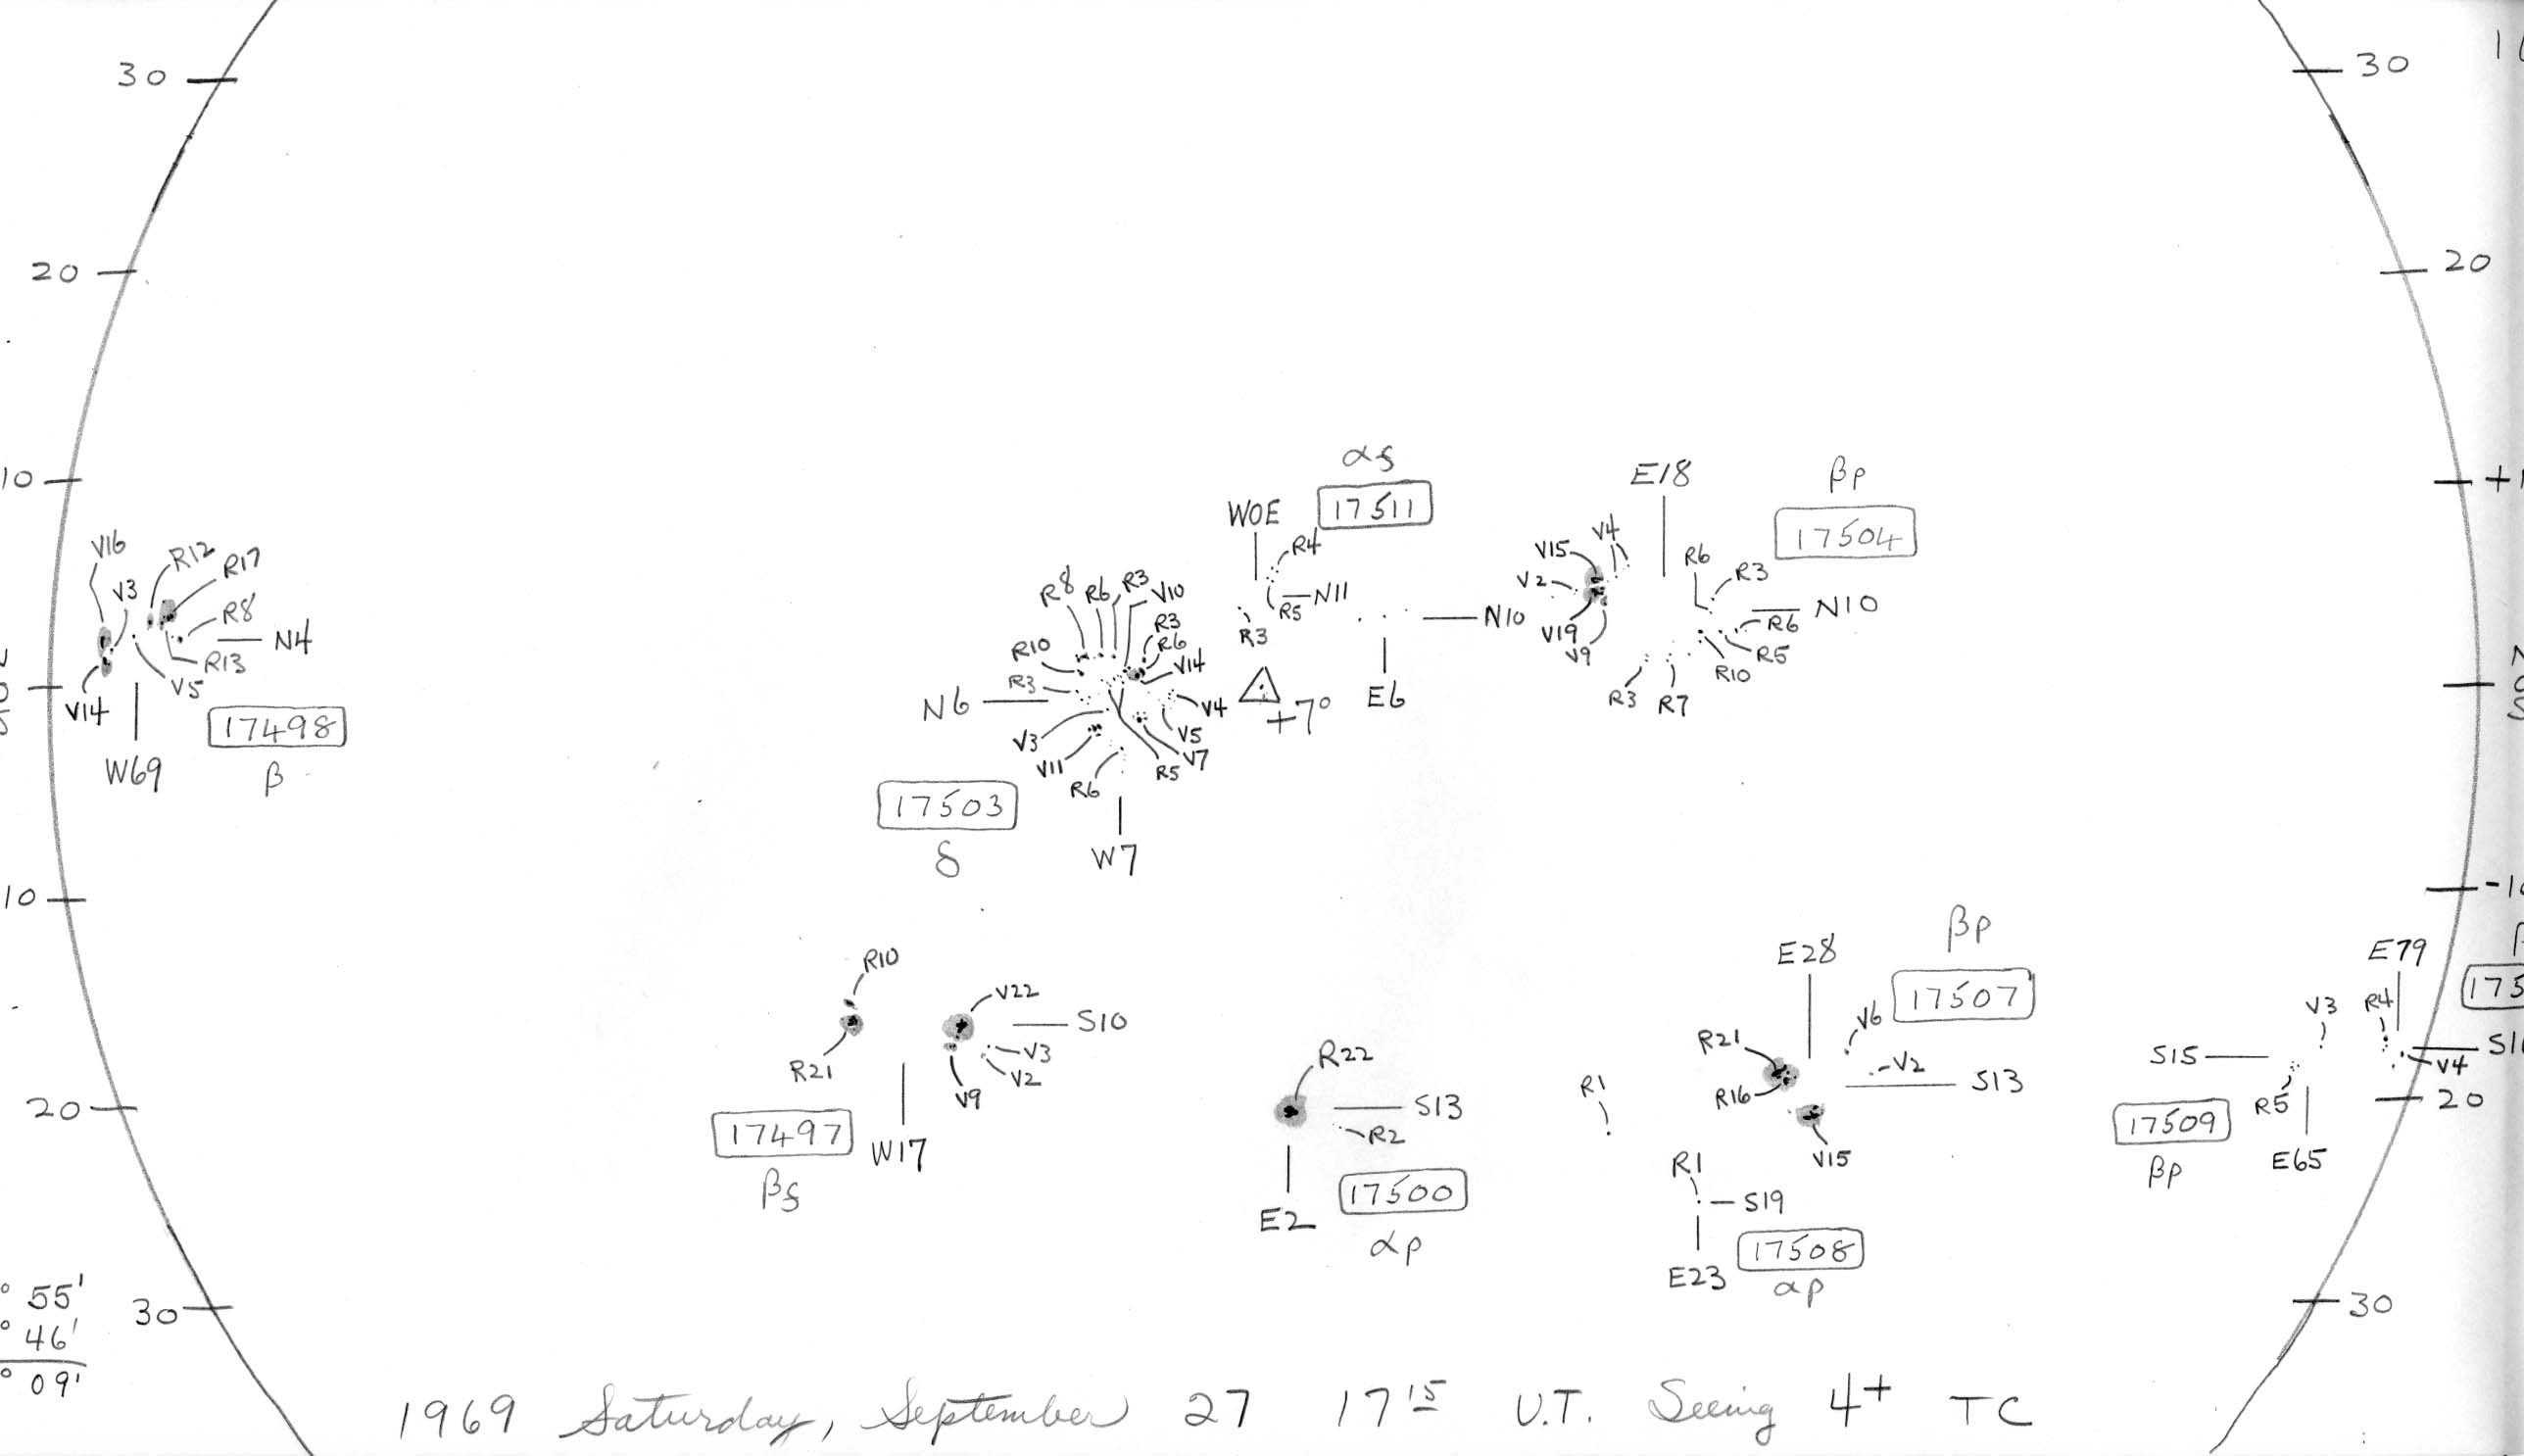 30
30
20
20
10
αf
17511
E18
βp
W0E
17504
V16
R12
R17
V3
R4
V15
V4
R6
R3
R8
R6
R3
V10
R5
N11
V2
N10
R8
N4
R3
R6
R3
N10
V19
R6
R13
R10
V14
V9
R5
V5
R3
R10
V14
N6
V4
+7°
E6
R3
R7
17498
V3
V5
V7
W69
V11
R5
β
R6
17503
δ
W7
10
βp
R10
E28
E79
V22
17507
V3
R4
S10
V6
R21
R22
S15
R21
V3
V2
V4
V2
S13
R1
R16
V9
S13
R5
20
20
R2
17509
17497
W17
V15
E65
R1
βp
βf
17500
S19
E2
αp
17508
E23
αp
55'
30
30
46'
09'
1969 Saturday, September 27 17 15 U.T. Seeing 4+ TC